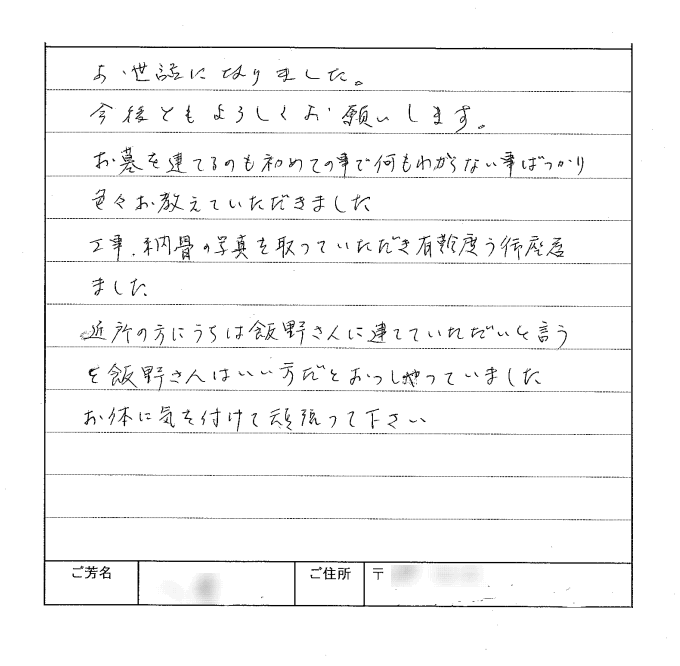 お世話になりました。
今後ともよろしくお願いします。
お墓を建てるのも初めての事で何もわからない事ばっかり
色々お教えていただきました
工事、納骨の写真を取っていただき有難度う御座居
ました
近所の方にうちは飯野さんに建てていただいと言う
と飯野さんはいい方だとおっしゃっていました
お体に気を付けて頑張って下さい
ご芳名 ご住所 〒